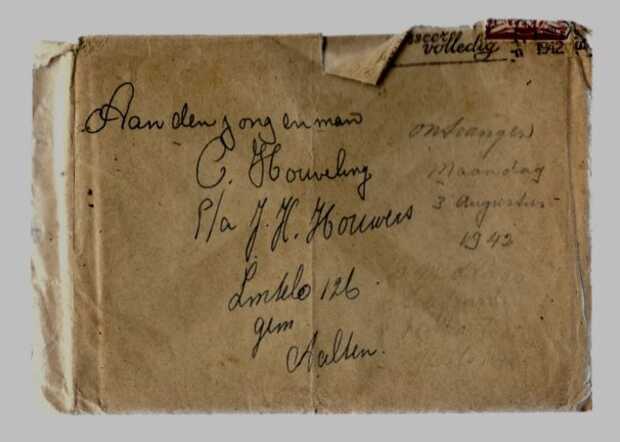 sseer
volledig 1942
Aan den jongenman
C. Houveling
P/a J. H. Houwers
Lintelo 126
gem
Aalten.
ontvangen
Maandag
3 Augustus
1942